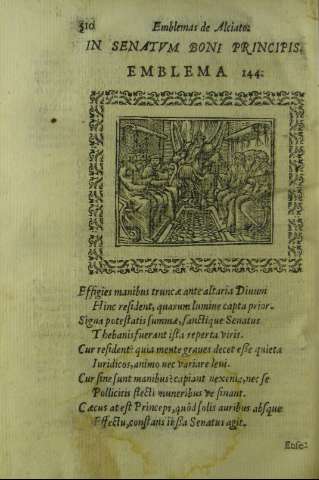 510
Emblemas de Alciato:
IN SENATVM BONI PRINCIPIS.
EMBLEMA 144.
Effigies manibus truncæ ante altaria Diuum
Hinc resident, quarum lumine capta prior.
Signa potestatis summæ, sanctique Senatus
Thebanis fuerant ista reperta viris.
Cur resident? quia mente graues decet esse quieta
Iuridicos, animo nec variare leui.
Cur sine sunt manibus? capiant ne xenia, nec se
Pollicitis flecti muneribus ve sinant.
Cæcus at est Princeps, quòd solis auribus absque
Effectu, constans iussa Senatus agit.
Ense: